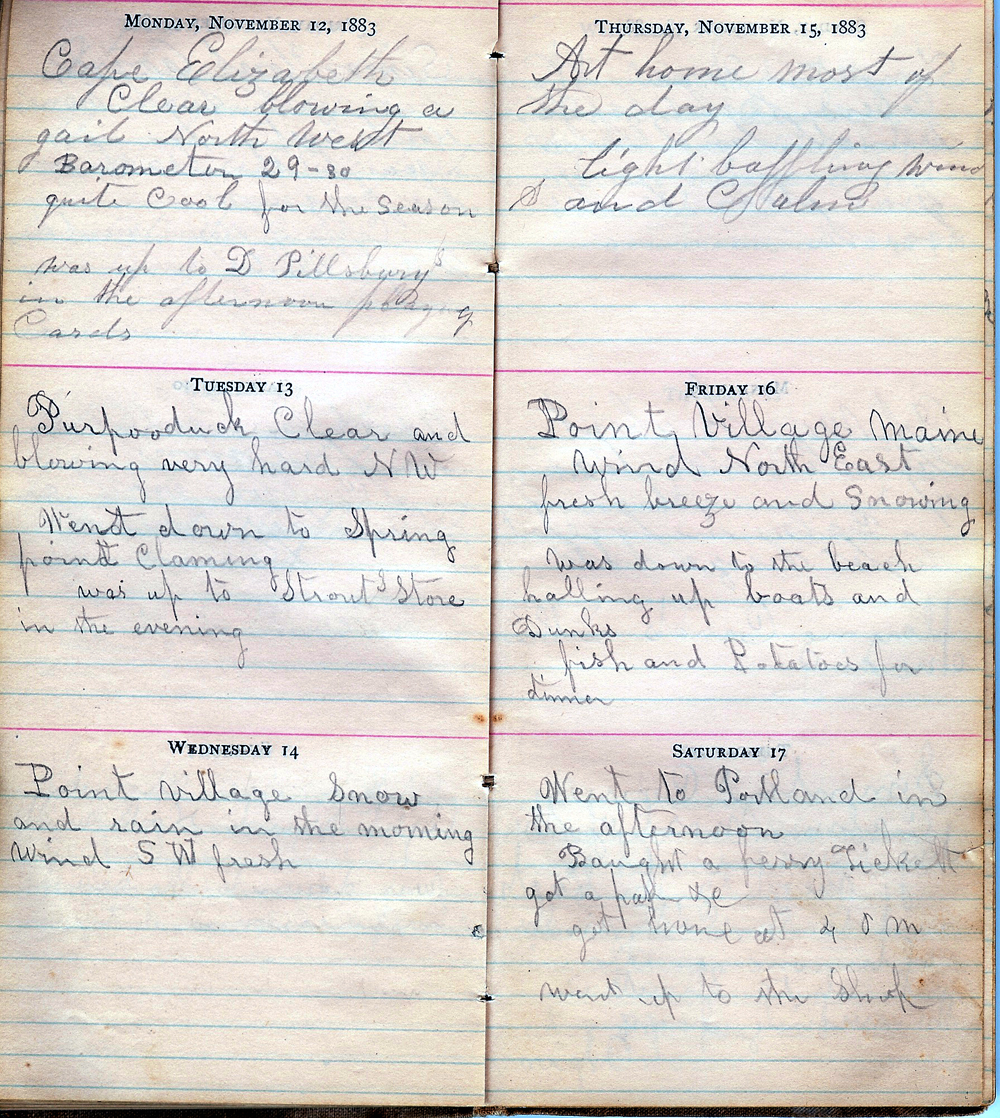 Monday, November 12, 1883
Cape Elizabeth
Clear blowing a
gail North West
Barometer 29-80
quite Cool for the Season
was up to D Pillsbury's
in the afternoon playing
Cards
Tuesday 13
Purpooduck Clear and
blowing very hard N W
Went down to Spring
point Claming
was up to Strout's Store
in the evening
Wednesday 14
Point village Snow
and rain in the morning
Wind S W fresh
Thursday, November 15, 1883
At home most of
the day
light baffling wind
S and Calm
Friday 16
Point Village Maine
Wind North East
fresh breeze and Snowing
was down to the beach
halling up boats and
Dunks
fish and Potatoes for
dinner
Saturday 17
Went to Portland in
the afternoon
Baught a ferry Tickett
got a &c
got home at 4 P M
went up to the Shop